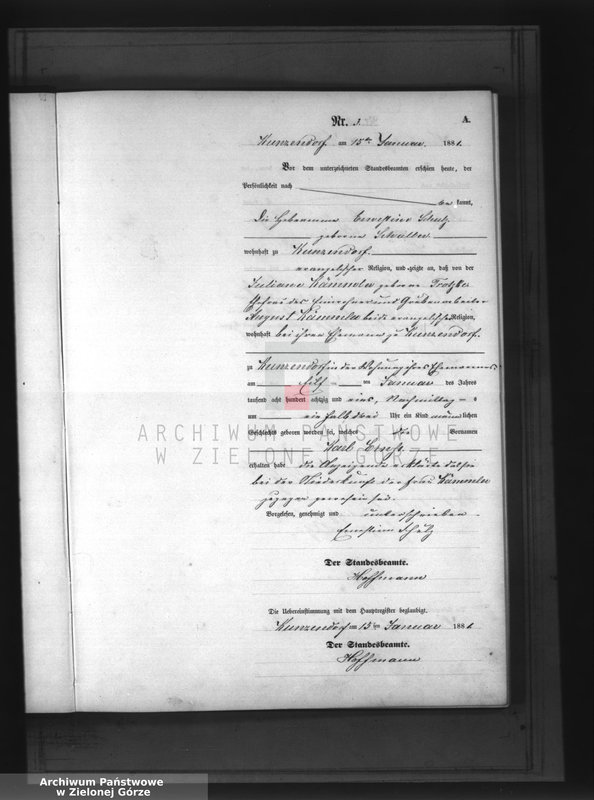 Nr. 3. A.
Kunzendorf am 15ten Januar 1881.
Vor dem unterzeichneten Standesbeamten erschien heute, der
Persönlichkeit nach
be kannt,
Die Hebamme Ernestine Schulz
geborne
wohnhaft zu Kunzendorf
evangelischer Religion, und zeigte an, daß von der
Juliane Kämmler geborne
Ehefrau des Einwohner und Grubenarbeiter
August Kämmler beide evangelischer Religion,
wohnhaft bei ihren Ehemann zu Kunzendorf.
zu Kunzendorf in der Wohnung ihres Ehemannes
am elf ten Januar des Jahres
tausend acht hundert achtzig und eins, Nachmittag s
um ein halb drei Uhr ein Kind männ lichen
Geschlechts geboren worden sei, welches die Vornamen
Karl Ernst
erhalten habe die Anzeigende erklärte daß sie
bei der Niederkunft der Frau Kämmler
zugegen gewesen sei.
Vorgelesen, genehmigt und unterschrieben
Ernestine Schulz
Der Standesbeamte.
Hoffmann
Die Uebereinstimmung mit dem Hauptregister beglaubigt.
Kunzendorf am 15ten Januar 1881.
Der Standesbeamte.
Hoffmann
ARCHIWUM PAŃSTWOWE
W ZIELONEJ GÓRZE
Archiwum Państwowe
w Zielonej Górze